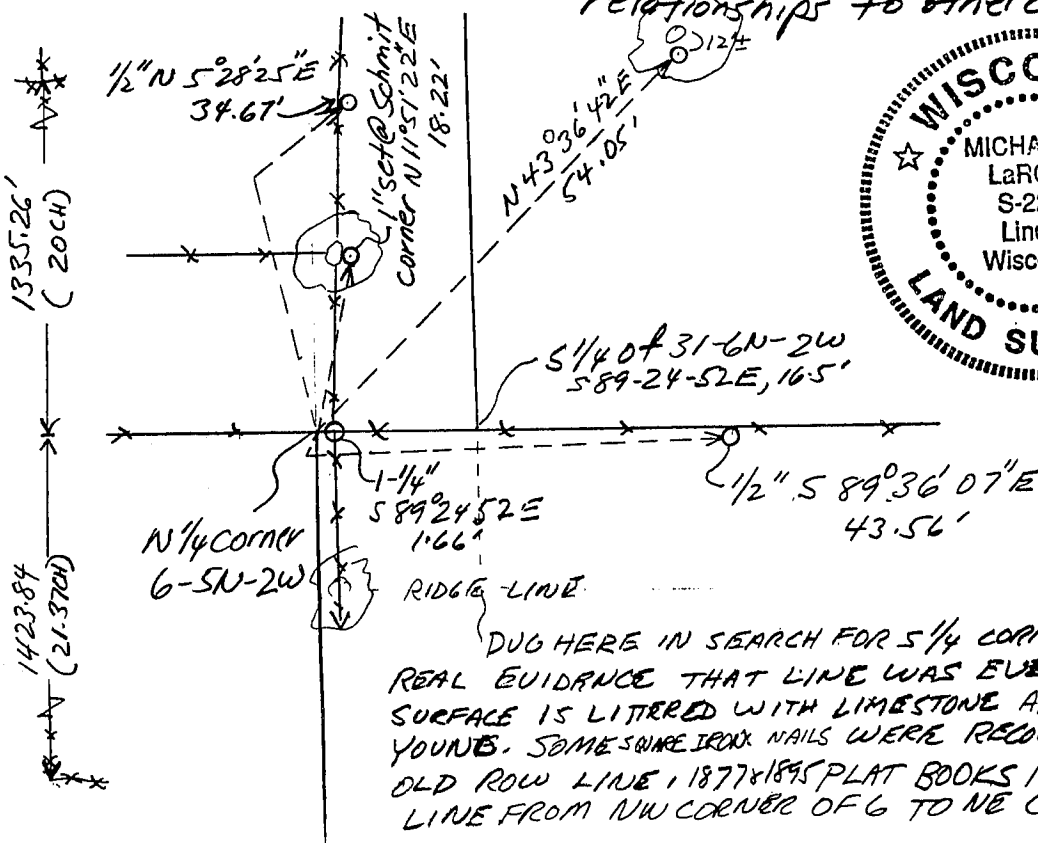 relationships to other
1/2" N 5°28'25"E
34.67'
1" set @ Schmit
corner N 11°51'22"E
18.22'
12"±
N 43°36'42"E
54.05'
WISCO
MICHA
LaRO
S-22
Line
Wisco
LAND SU
1335.26'
(20CH)
S 1/4 of 31-6N-2W
S 89-24-52E, 16.5'
1-1/4"
S 89°24'52E
1.66'
1/2" S 89°36'07"E
43.56'
N 1/4 corner
6-5N-2W
1423.84
(21.37CH)
RIDGE LINE
DUG HERE IN SEARCH FOR S 1/4 COR
REAL EVIDRNCE THAT LINE WAS EVE
SURFACE IS LITTRED WITH LIMESTONE A
YOUNG. SOME SQUARE IRON NAILS WERE RECO
OLD ROW LINE, 1877&1895 PLAT BOOKS I
LINE FROM NW CORNER OF 6 TO NE C